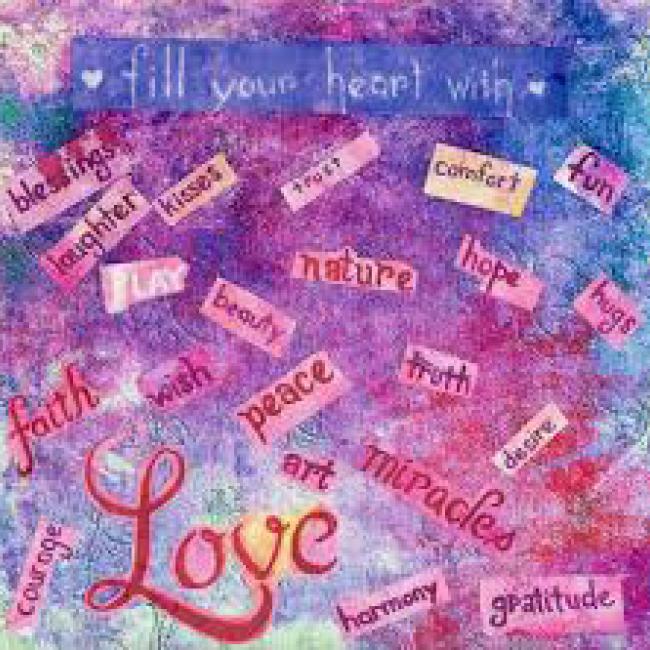 fill your heart with
blessings
laughter
kisses
trust
comfort
fun
PLAY
nature
hope
hugs
beauty
faith
wish
peace
truth
desire
art
miracles
Love
courage
harmony
gratitude